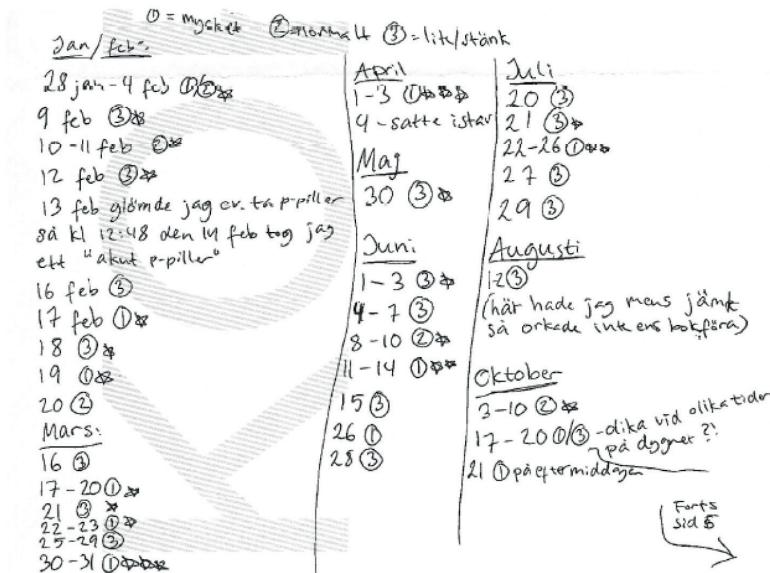 ① = mycket ② = normalt ③ = lite/stänk
Jan/feb:
28 jan - 4 feb ①/②*
9 feb ③*
10 -11 feb ②*
12 feb ③*
13 feb glömde jag ev. ta p-piller
så kl 12:48 den 14 feb tog jag
ett "akut p-piller"
16 feb ③
17 feb ①*
18 ③*
19 ①*
20 ②
Mars:
16 ③
17 - 20 ①*
21 ③ *
22 - 23 ①*
25 - 29 ③
30 - 31 ①***
April
1 - 3 ①***
4 - satte istav
Maj
30 ③*
Juni
1 - 3 ③*
4 - 7 ③
8 - 10 ②*
11 - 14 ①**
15 ③
26 ①
28 ③
Juli
20 ③
21 ③*
22 - 26 ①**
27 ③
29 ③
Augusti
12 ③
(här hade jag mens jämt
så orkade inte ens bokföra)
Oktober
3 - 10 ② *
17 - 20 ①/③ - olika vid olika tider
på dygnet ?!
21 ① på eftermiddagen
Forts
sid 5
KO